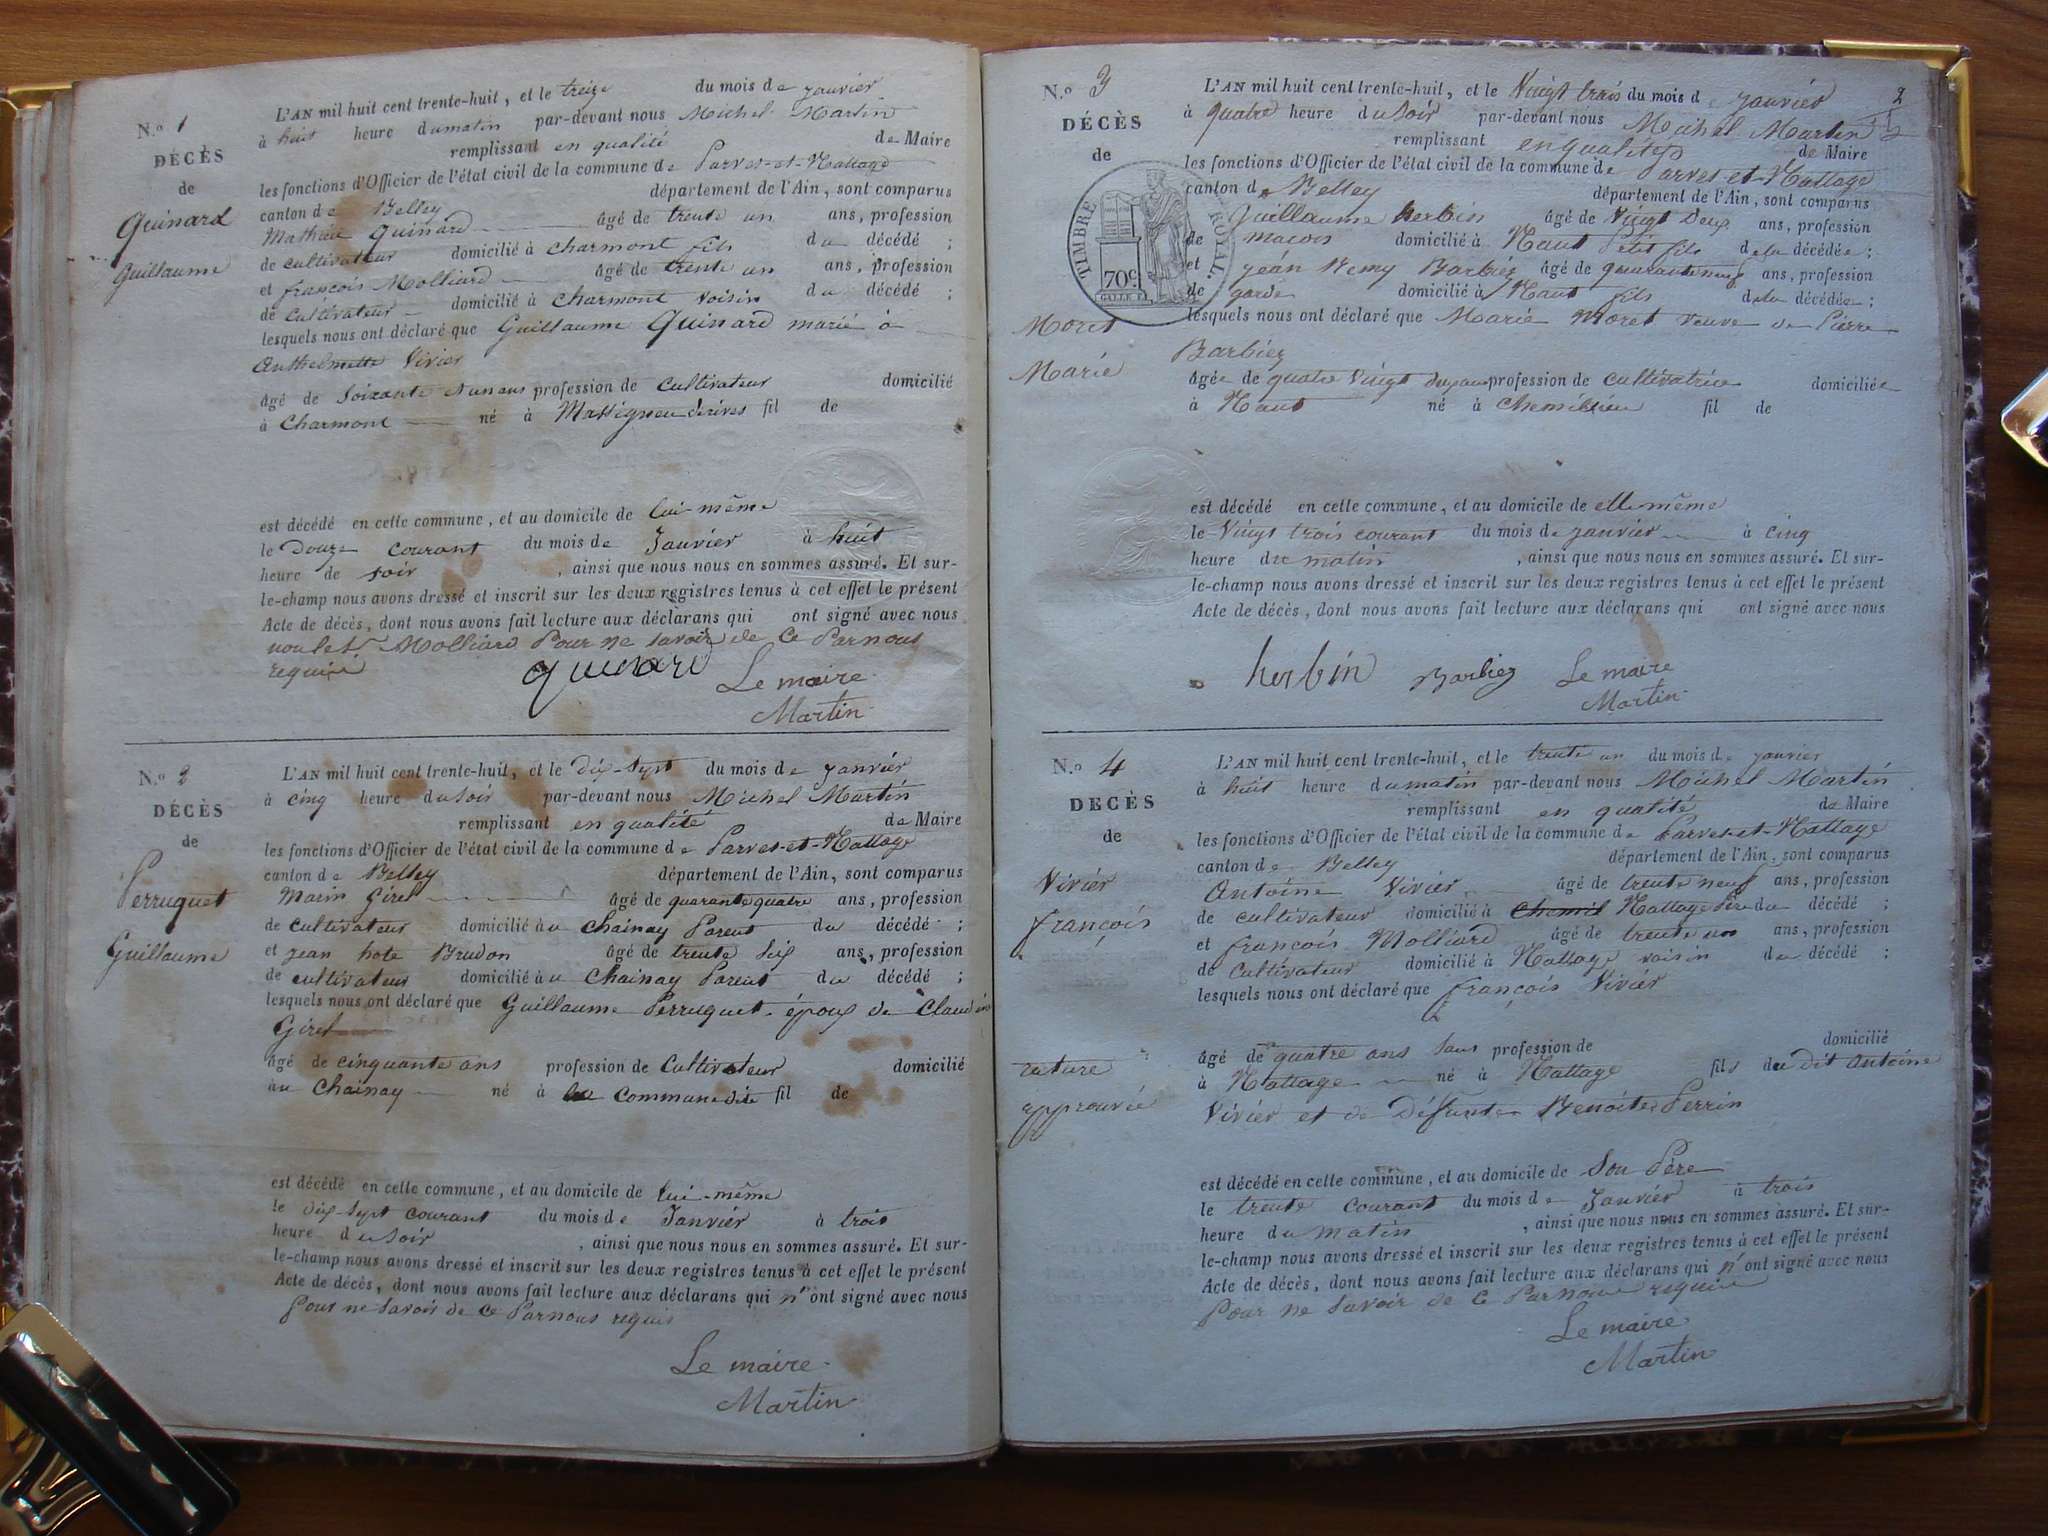 N.º 1
DÉCÈS
de
Guinard
Guillaume
L'AN mil huit cent trente-huit, et le treize du mois de janvier
à huit heure du matin par-devant nous Michel Martin
remplissant en qualité de Maire
les fonctions d'Officier de l'état civil de la commune de Parves-et-Nattage
canton de Belley département de l'Ain, sont comparus
Mathieu Guinard âgé de trente un ans, profession
de cultivateur domicilié à Charmont fils du décédé ;
et françois Molliard âgé de trente un ans, profession
de cultivateur domicilié à Charmont voisin du décédé ;
lesquels nous ont déclaré que Guillaume Guinard marié à
Anthelmette Vivier
âgé de soixante et un ans profession de cultivateur domicilié
à Charmont né à Massigneu derives fil de
est décédé en cette commune, et au domicile de lui-même
le Douze courant du mois de Janvier à huit
heure de soir , ainsi que nous nous en sommes assuré. Et sur-
le-champ nous avons dressé et inscrit sur les deux registres tenus à cet effet le présent
Acte de décès, dont nous avons fait lecture aux déclarans qui ont signé avec nous
non le Sr Molliard Pour ne savoir de ce Par nous
requis
Guinard Le maire
Martin
N.º 2
DÉCÈS
de
Perruquet
Guillaume
L'AN mil huit cent trente-huit, et le dix-sept du mois de janvier
à cinq heure du soir par-devant nous Michel Martin
remplissant en qualité de Maire
les fonctions d'Officier de l'état civil de la commune de Parves-et-Nattage
canton de Belley département de l'Ain, sont comparus
Marin Giret âgé de quarante quatre ans, profession
de cultivateur domicilié à u Chainay Parent du décédé ;
et jean hote Brudon âgé de trente six ans, profession
de cultivateur domicilié à u Chainay Parent du décédé ;
lesquels nous ont déclaré que Guillaume Perruquet époux de Claudine
Giret
âgé de cinquante ans profession de Cultivateur domicilié
au Chainay né à commune dite fil de
est décédé en cette commune, et au domicile de lui-même
le dix-sept courant du mois de Janvier à trois
heure du soir , ainsi que nous nous en sommes assuré. Et sur-
le-champ nous avons dressé et inscrit sur les deux registres tenus à cet effet le présent
Acte de décès, dont nous avons fait lecture aux déclarans qui n'ont signé avec nous
Pour ne savoir de ce Par nous requis
Le maire
Martin
2
N.º 3
DÉCÈS
de
TIMBRE ROYAL.
70c.
Moret
Marie
L'AN mil huit cent trente-huit, et le Vingt trois du mois de janvier
à quatre heure du soir par-devant nous Michel Martin
remplissant en qualité de Maire
les fonctions d'Officier de l'état civil de la commune de Parves-et-Nattage
canton de Belley département de l'Ain, sont comparus
Guillaume herbin âgé de Vingt Deux ans, profession
de macon domicilié à Nant Petit fils de la décédée ;
et jean Remy Barbiez âgé de quarante neuf ans, profession
de garde domicilié à Nant fils de la décédée ;
lesquels nous ont déclaré que Marie Moret veuve de Pierre
Barbiez
âgée de quatre Vingt deux ans profession de cultivatrice domiciliée
à Nant né à Chemilieu fil de
est décédé en cette commune, et au domicile de elle même
le Vingt trois courant du mois de janvier à cinq
heure du matin , ainsi que nous nous en sommes assuré. Et sur-
le-champ nous avons dressé et inscrit sur les deux registres tenus à cet effet le présent
Acte de décès, dont nous avons fait lecture aux déclarans qui ont signé avec nous
herbin Barbiez Le maire
Martin
N.º 4
DÉCÈS
de
Vivier
françois
rature
approuvée
L'AN mil huit cent trente-huit, et le trente un du mois de janvier
à huit heure du matin par-devant nous Michel Martin
remplissant en qualité de Maire
les fonctions d'Officier de l'état civil de la commune de Parves-et-Nattage
canton de Belley département de l'Ain, sont comparus
Antoine Vivier âgé de trente neuf ans, profession
de cultivateur domicilié à Chemil Nattage Père du décédé ;
et françois Molliard âgé de trente un ans, profession
de cultivateur domicilié à Nattage voisin du décédé ;
lesquels nous ont déclaré que françois Vivier
âgé de quatre ans sans profession de domicilié
à Nattage né à Nattage fils du dit Antoine
Vivier et de Défunte Benoite Perrin
est décédé en cette commune, et au domicile de Son Père
le trente courant du mois de Janvier à trois
heure du matin , ainsi que nous nous en sommes assuré. Et sur-
le-champ nous avons dressé et inscrit sur les deux registres tenus à cet effet le présent
Acte de décès, dont nous avons fait lecture aux déclarans qui n'ont signé avec nous
Pour ne savoir de ce Par nous requis
Le maire
Martin